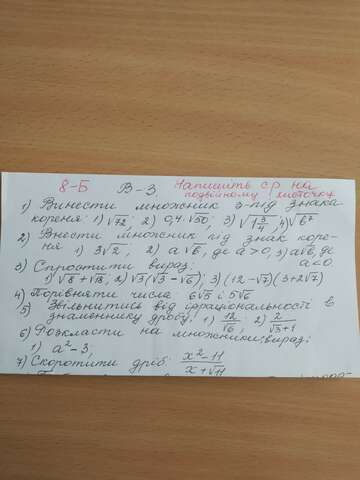 8-Б В-3 Напишіть ср на
подвійному листочку
1) Винести множник з-під знака
кореня: 1) √72; 2) 0,4√50; 3) √(1 3/4); 4) √b²
2) Внести множник під знак коре-
ня 1) 3√2, 2) a√6, де a>0, 3) a√6, де
a<0
3) Спростити вираз:
1) √8+√18, 2) √3(√3-√6); 3) (12-√7)(3+2√7)
4) Порівняти числа: 6√5 і 5√6
5) Звільнитись від ірраціональності в
знаменнику дробу: 1) 12/√6; 2) 2/(√3+1)
6) Розкласти на множники вираз:
1) a²-3;
7) Скоротити дріб: (x²-11)/(x+√11)